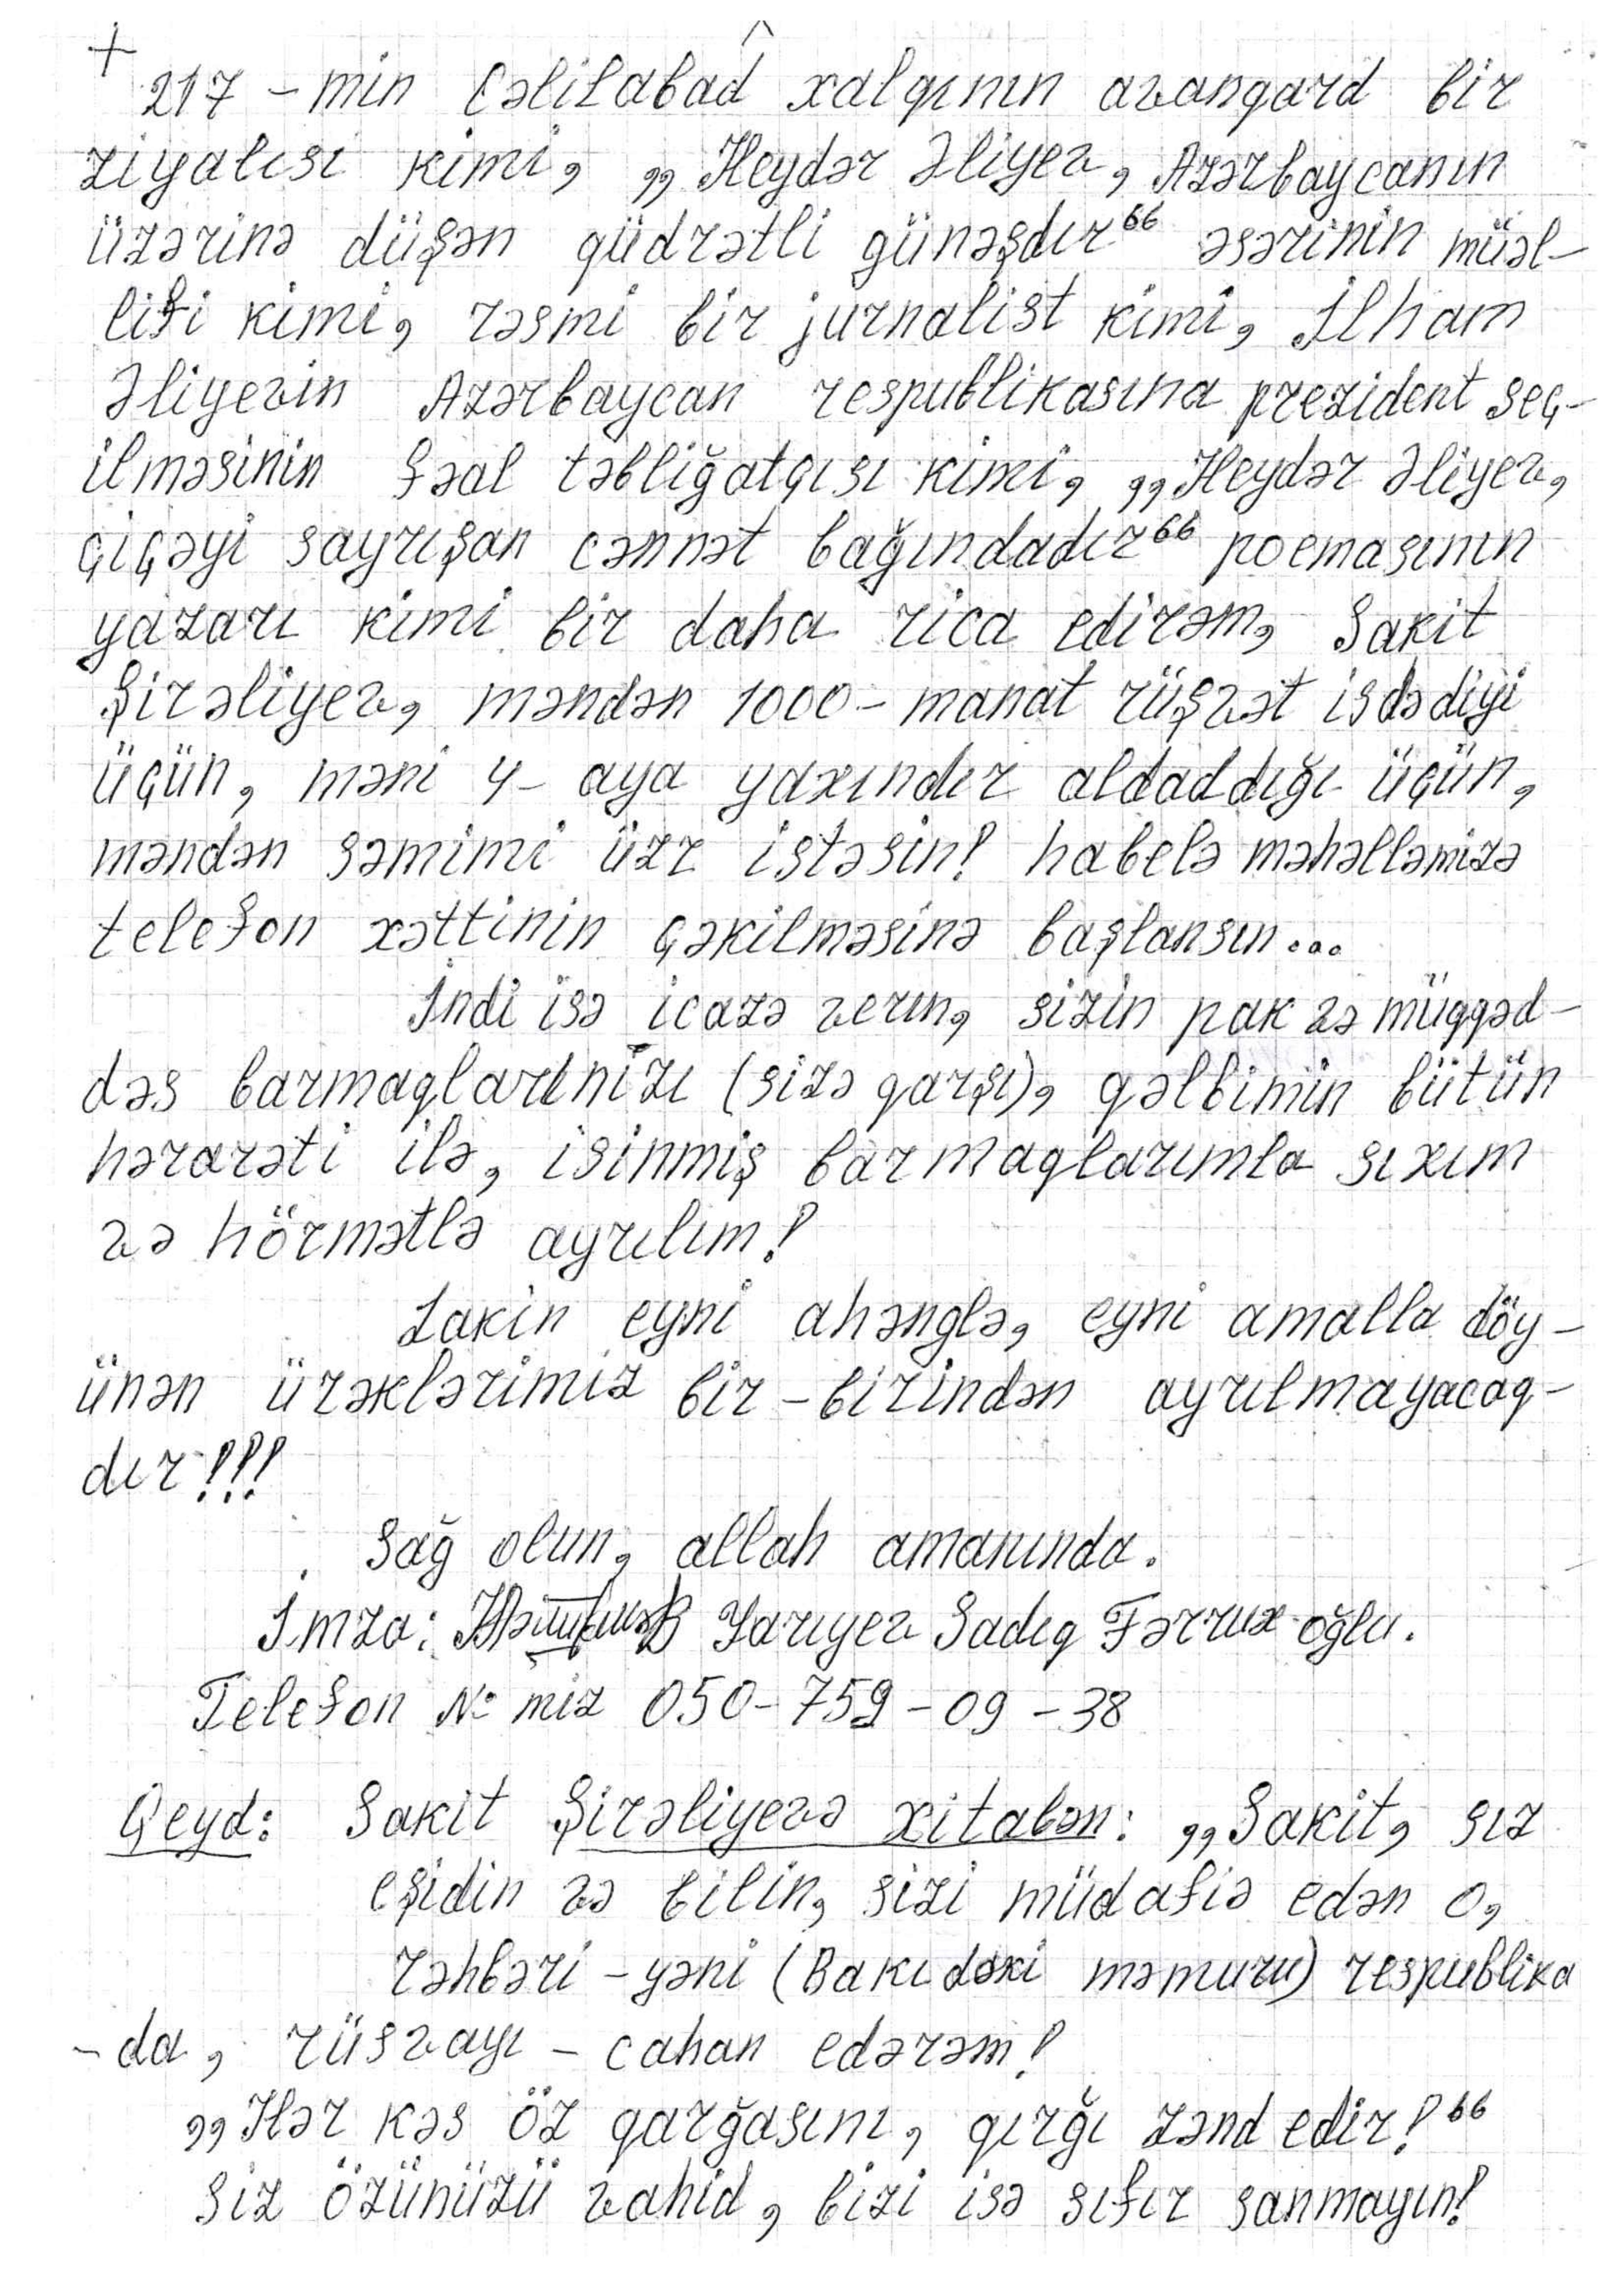 +
217 – min Cəlilabad xalqının avanqard bir
ziyalısı kimi, „Heydər Əliyev, Azərbaycanın
üzərinə düşən qüdrətli günəşdir“ əsərinin müəl-
lifi kimi, rəsmi bir jurnalist kimi, İlham
Əliyevin Azərbaycan respublikasına prezident seç-
ilməsinin fəal təbliğatçısı kimi, „Heydər Əliyev,
çiçəyi sayrışan cənnət bağındadır“ poemasının
yazarı kimi bir daha rica edirəm, Sakit
Şirəliyev, məndən 1000 – manat rüşvət isdədiyi
üçün, məni 4 – aya yaxındır aldaddığı üçün,
məndən səmimi üzr istəsin! habelə məhəlləmizə
telefon xəttinin çəkilməsinə başlansın...
İndi isə icazə verin, sizin pak və müqqəd-
dəs barmaqlarınızı (sizə qarşı), qəlbimin bütün
hərarəti ilə, isinmiş barmaqlarımla sıxım
və hörmətlə ayrılım!
Lakin eyni ahənglə, eyni amalla döy-
ünən ürəklərimiz bir-birindən ayrılmayacaq-
dır!!!
Sağ olun, allah amanında.
İmza: Yarıyev Sadıq Fərrux oğlu.
Telefon № miz 050-759-09-38
Qeyd: Sakit Şirəliyevə xitabən: „Sakit, siz
eşidin və bilin, sizi müdafiə edən o,
rəhbəri – yəni (Bakıdəki məmuru) respublika
– da, rüsvayı – cahan edərəm!
„Hər kəs öz qarğasını, qırğı zənd edir!“
Siz özünüzü vahid, bizi isə sıfır sanmayın!